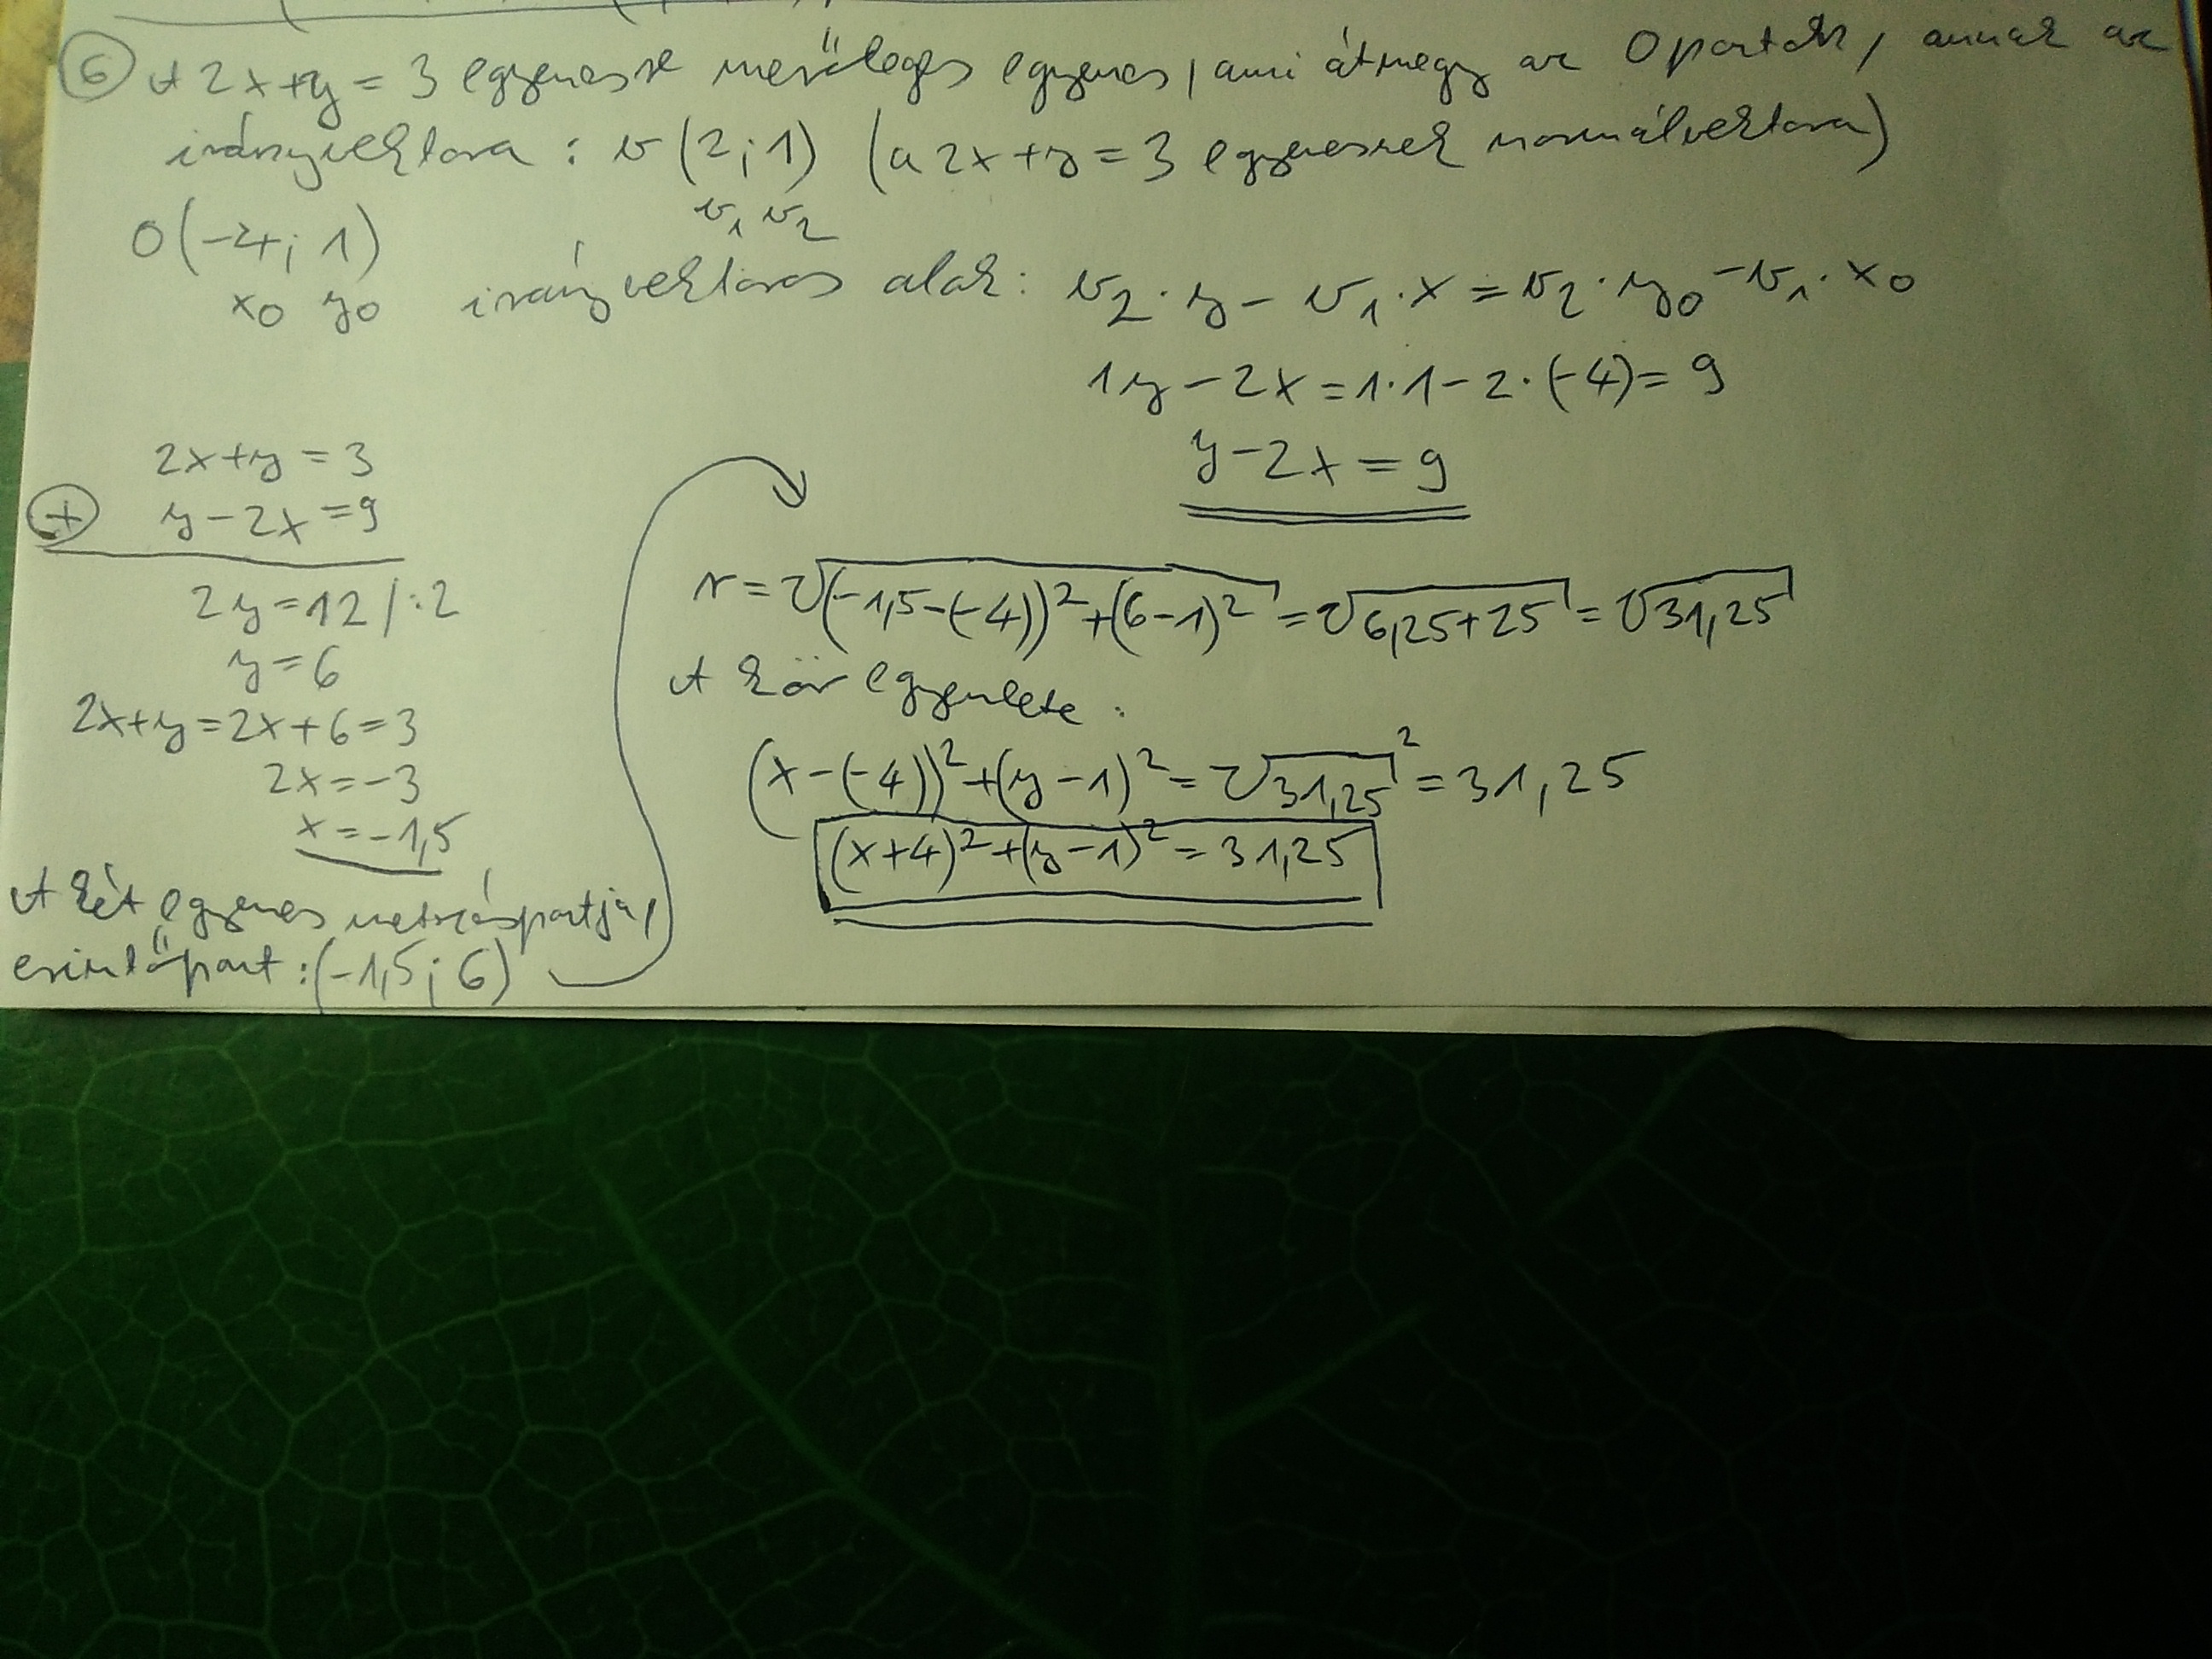 6 A 2x+y=3 egyenesre merőleges egyenes, ami átmegy az O ponton, annak az
irányvektora: v(2; 1) (a 2x+y=3 egyenesnek normálvektora)
v₁ v₂
O(-4; 1)
x₀ y₀
irányvektoros alak: v₂·y - v₁·x = v₂·y₀ - v₁·x₀
1y - 2x = 1·1 - 2·(-4) = 9
y - 2x = 9
2x+y = 3
+ y - 2x = 9
2y = 12 /:2
y = 6
2x+y = 2x+6 = 3
2x = -3
x = -1,5
A két egyenes metszéspontja,
érintőpont: (-1,5; 6)
r = √(-1,5-(-4))² + (6-1)² = √6,25+25 = √31,25
A kör egyenlete:
(x-(-4))² + (y-1)² = √31,25² = 31,25
(x+4)² + (y-1)² = 31,25